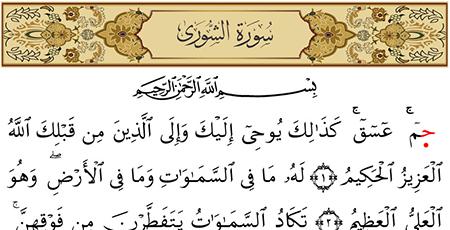 سُورَةُ الشُّورَى
بِسْمِ اللَّهِ الرَّحْمَٰنِ الرَّحِيمِ
جمٓ ۚ عٓسٓقٓ ۚ كَذَٰلِكَ يُوحِىٓ إِلَيْكَ وَإِلَى الَّذِينَ مِن قَبْلِكَ اللَّهُ
الْعَزِيزُ الْحَكِيمُ ﴿١﴾ لَهُ مَا فِى السَّمَٰوَٰتِ وَمَا فِى الْأَرْضِ ۖ وَهُوَ
الْعَلِىُّ الْعَظِيمُ ﴿٢﴾ تَكَادُ السَّمَٰوَٰتُ يَتَفَطَّرْنَ مِن فَوْقِهِنَّ ۚ